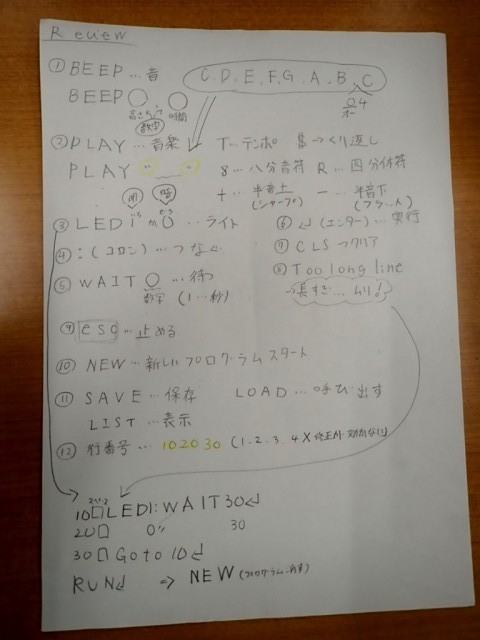 Review
① BEEP…音
C.D.E.F.G.A.B.C
BEEP○ ○
高さ 時間
数字
O4
オー
② PLAY…音楽 T…テンポ $…くり返し
PLAY " "
8…八分音符 R…四分休符
+…半音上 −…半音下
(シャープ) (フラット)
明 暗
いち ぜろ
③ LED 1か0 …ライト
⑥ ↵(エンター)…実行
④ :(コロン)…つなぐ
⑦ CLS→クリア
⑤ WAIT○…待つ
数字 (1…秒)
⑧ Too long line
長すぎ…ムリ!
⑨ esc…止める
⑩ NEW…新しいプログラムスタート
⑪ SAVE…保存 LOAD…呼び出す
LIST…表示
⑫ 行番号…10 20 30 (1.2.3.4×修正
スペース
10□LED1:WAIT30↵
20□ 0〃 30
30□Goto 10↵
RUN↵ ⇒ NEW(プログラム消す)